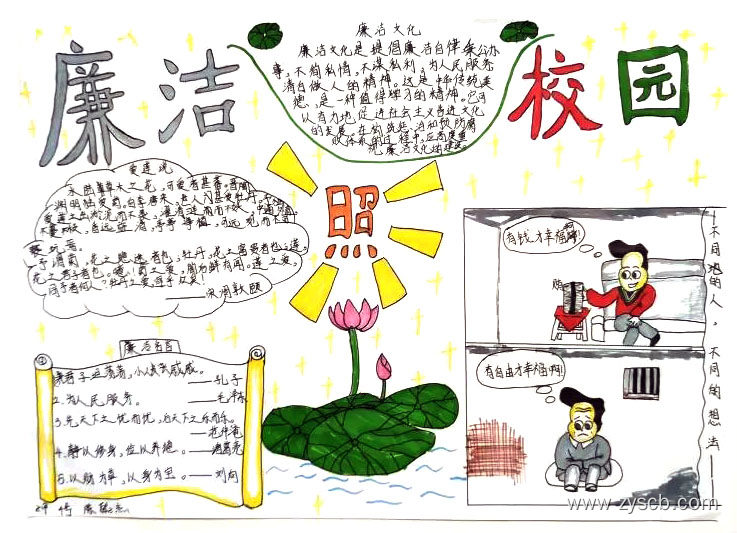 廉洁
照
校园
廉洁文化
廉洁文化是提倡廉洁自律秉公办
事，不徇私情，不谋私利，为人民服务
清白做人的精神。这是中华传统美
德，是一种值得学习的精神。它可
以有力地促进社会主义先进文化
的发展。
爱莲说
水陆草木之花，可爱者甚蕃。晋陶
渊明独爱菊。自李唐来，世人甚爱牡丹。
莲之出淤泥而不染，濯清涟而不妖，中通
不蔓不枝，香远益清，亭亭净植，可远观而不可
亵玩焉。
予谓菊，花之隐逸者也；牡丹，花之富贵者也；莲，
花之君子者也。噫！菊之爱，陶后鲜有闻。莲之爱，
同予者何人？牡丹之爱，宜乎众矣！
——宋周敦颐
廉洁名言
君子坦荡荡，小人长戚戚。
——孔子
2.为人民服务。——毛泽东
3.先天下之忧而忧，后天下之乐而乐。
——范仲淹
4.静以修身，俭以养德。——诸葛亮
5. ——刘向
有钱才幸福啊!
有自由才幸福啊!
不同地的人。 不同的想法——
www.zyscb.com